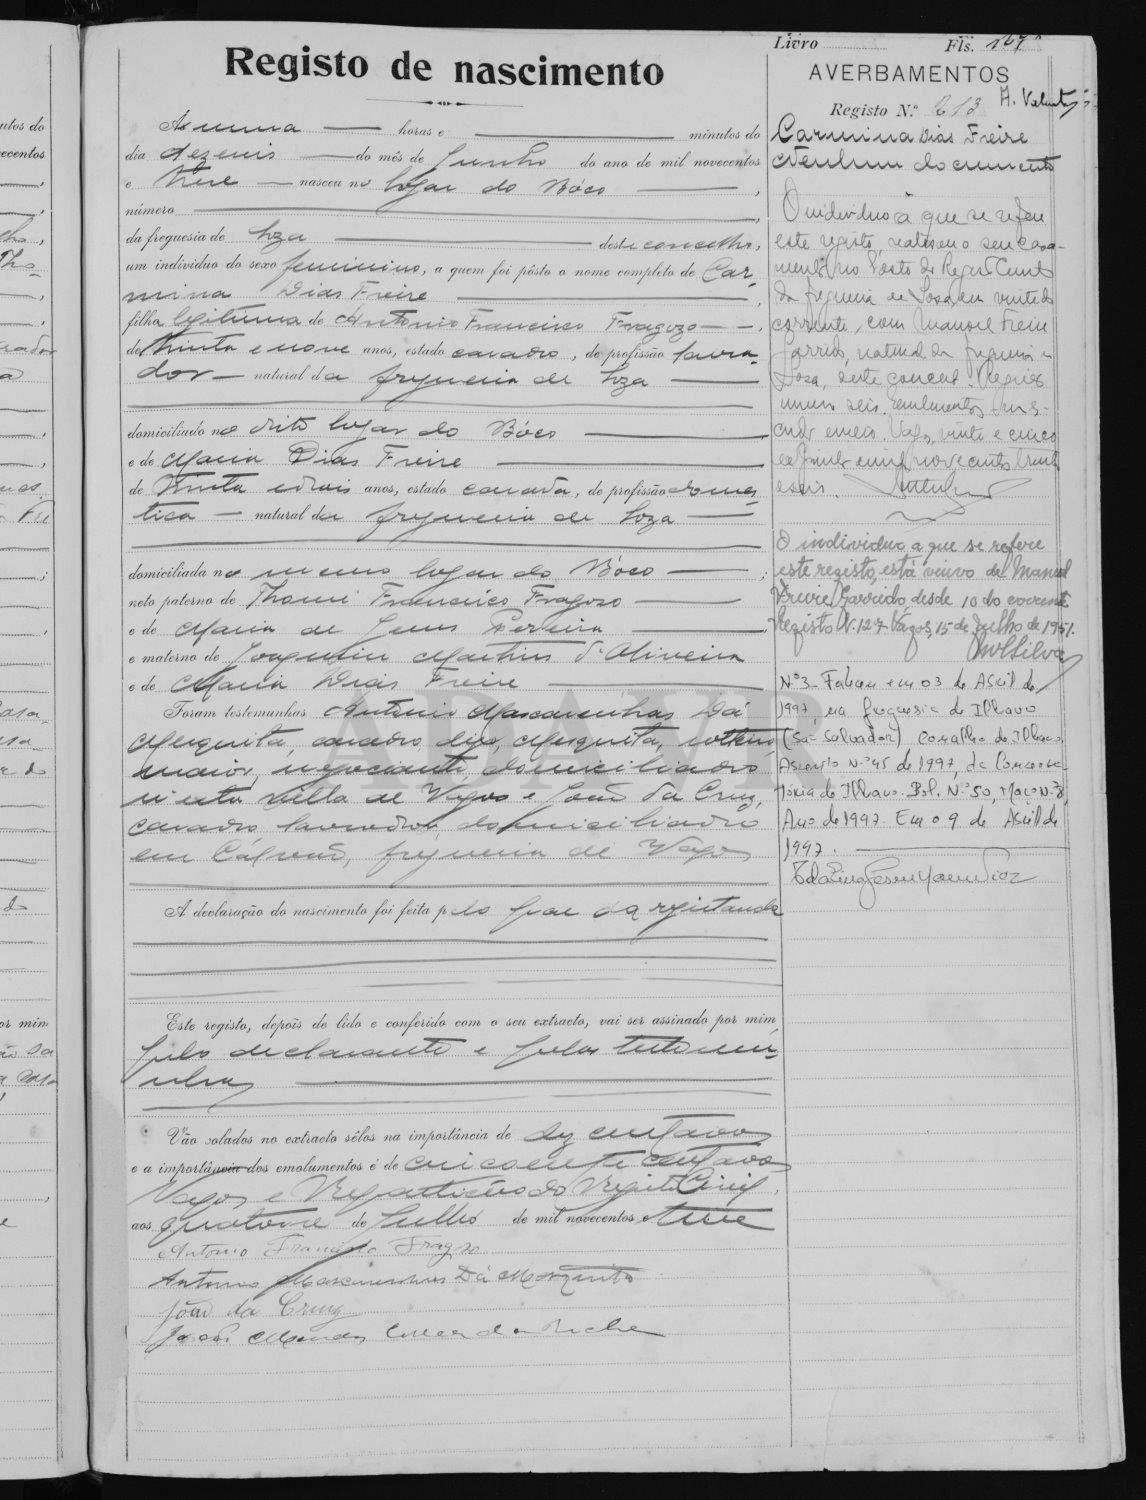 Livro Fls. 167
Registo de nascimento
AVERBAMENTOS
Registo N.º 213
Às uma horas e minutos do
dia dezeseis do mês de Junho do ano de mil novecentos
e treze nasceu no logar do Bôco,
número
da freguesia de Soza deste concelho,
um indivíduo do sexo feminino, a quem foi pôsto o nome completo de Car-
mina Dias Freire,
filha legitima de Antonio Francisco Fragozo,
de trinta e nove anos, estado casado, de profissão lavra-
dor natural da freguesia de Soza
domiciliado no dito logar do Bôco
e de Maria Dias Freire
de trinta e dois anos, estado casada, de profissão domes-
tica natural da freguesia de Soza
domiciliada no mesmo logar do Bôco;
neto paterno de Thomé Francisco Fragozo
e de Maria de Jesus Ferreira,
e materno de Joaquim Martins d'Oliveira
e de Maria Dias Freire
Foram testemunhas Antonio Mascarenhas Dá
Mesquita, casado, digo, Mesquita, solteiro,
maior, negociante, domiciliado
n'esta villa de Vagos e João da Cruz,
casado, lavrador, domiciliado
em freguesia de Vagos
A declaração do nascimento foi feita pelo pae da registanda
Este registo, depois de lido e conferido com o seu extracto, vai ser assinado por mim
pelo declarante e pelas testemu-
nhas
Vão colados no extracto sêlos na importância de dez centavos
e a importância dos emolumentos é de cincoenta centavos
Vagos e Repartição do Registo Civil,
aos quatorze de Julho de mil novecentos e treze
Antonio Francisco Fragozo
Antonio Mascarenhas Dá Mesquita
João da Cruz
Carmina Dias Freire
Nenhum documento
O individuo a que se refere
este registo, realisou o seu casa-
mento no Posto do Registo Civil
da freguesia de Soza em vinte do
corrente, com Manuel Freire
Garrido, natural da freguesia de
Soza, deste concelho. Registo
numero seis. Emolumentos um es-
cudo Vagos, vinte e cinco
de mil novecentos trinta
e seis.
O individuo a que se refere
este registo, está viuvo de Manuel
Freire Garrido, desde 10 do corrente
Registo N. 127 Vagos, 15 de Julho de 1951.
N.º 3 - Faleceu em 03 de Abril de
1997, na freguesia de Ilhavo
(São Salvador), concelho de Ilhavo.
Assento N.º 45 de 1997, da Conserva-
tória de Ilhavo. Bol. N.º 50, Maço N.º 8,
Ano de 1997. Em 09 de Abril de
1997.
ADAVR